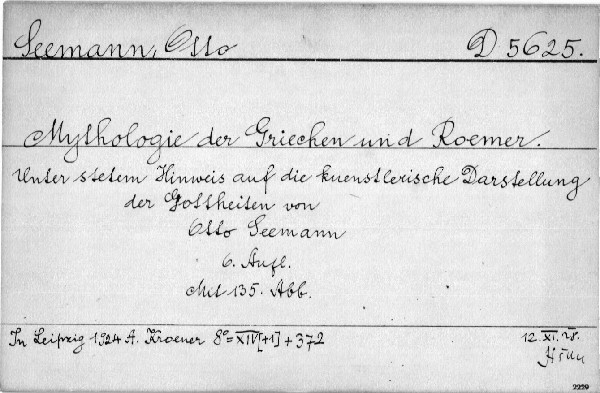 Seemann, Otto D 5625.
Mythologie der Griechen und Roemer.
Unter stetem Hinweis auf die kuenstlerische Darstellung
der Gottheiten von
Otto Seemann
6. Aufl.
Mit 135. Abb.
In Leipzig 1924 A. Kroener 8°=XIV[+1]+372 12.XI.28.
2229